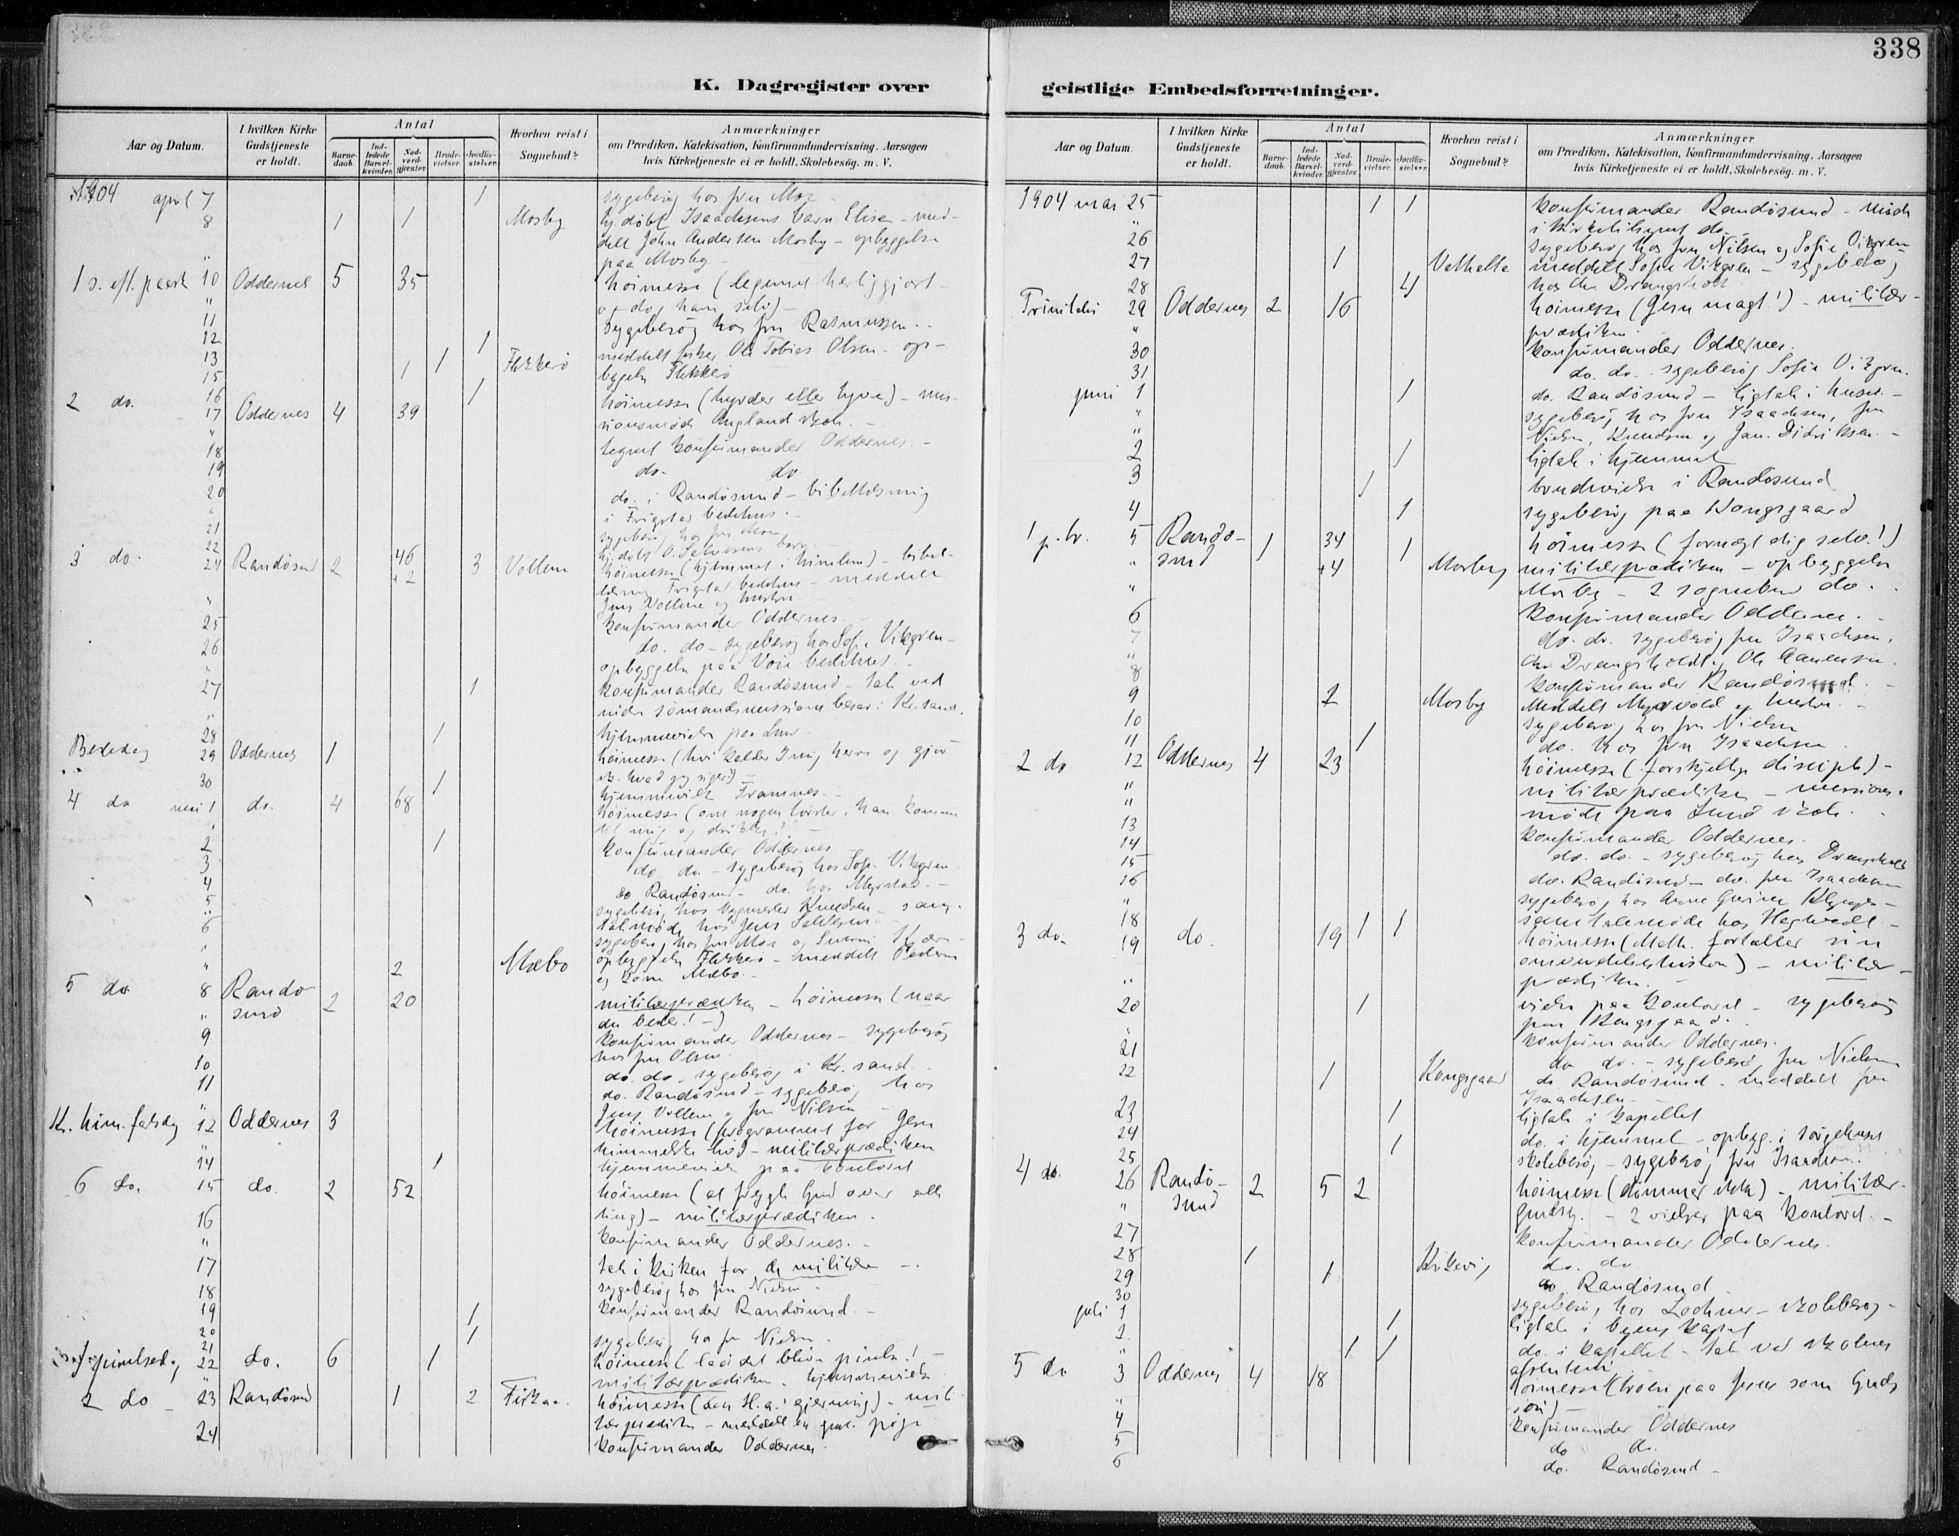 338
K. Dagregister over geistlige Embedsforretninger.
Aar og Datum. I hvilken Kirke Gudstjeneste er holdt. Antal Barnedaab. Indledede Barselkvinder. Nadverdgjester Brudevielser. Jordfæstelser. Hvorhen reist i Sognebud? Anmærkninger om Prædiken, Katekisation, Konfirmandundervisning, Aarsagen hvis Kirketjeneste ei er holdt, Skolebesøg. m. V.
1904 april 7 1 sygebesøg hos fru Moe
8 1 1 Mosby hj.døbt Isaachsens barn Elise - med-
delt John Andersen Mosby - opbyggelse
paa Mosby -
1 s. eft. paask 10 Oddernes 5 35 høimesse (legemet herliggjort -
og dog ham selv) -
11 sygebesøg hos fru Rasmussen. -
12 1
13 1 1 Flekkerø meddelt fisker Ole Tobias Olsen - op-
15 byggelse Flekkerø
16 1
2 do. 17 Oddernes 4 39 høimesse (hyrder eller tyve) - mis-
sionsmøde
18 tegnet konfirmander Oddernes. -
19 do. do
20 do. i Randøsund - bibellæsning
i Frigstad bedehus. -
21 sygebesøg hos fru Moe
22 hj.døbt barn
3 do. 24 Randøsund 2 46 +2 3 Vollene høimesse (hjemmet i himlen) - bibel-
læsning Frigstad bedehus - meddelt
Jens Vollene og hustru. -
25 konfirmander Oddernes. -
26 do. do - sygebesøg hos Sof. Vikgren -
opbyggelse paa Voie bedehus. -
27 1 konfirmander Randøsund - tale ved
28 1 hjemmevielse paa Lund -
Bededag 29 Oddernes 1 høimesse (hvi kalder I mig herre og gjør
ik. hvad jeg siger?) -
30 1 hjemmevielse -
4 do mai 1 do. 4 68 høimesse (om nogen tørster, han komme
til mig og drikke) -
2 1 konfirmander Oddernes
3 do. do - sygebesøg hos Sof. Vikgren
4 do Randøsund - do. hos -
5 sygebesøg hos Knudsen - sam-
6 talemøde hos Jens
sygebesøg hos fru Moe og
2 Mæbø opbyggelse Flekkerø - meddelt Pedersen
Mæbø. -
5 do 8 Randøsund 2 20 militærprædiken - høimesse (naar
du beder! -)
9 konfirmander Oddernes - sygebesøg
hos fru Olsen.
10 do. do - sygebesøg i Kr.sand. -
11 do. Randøsund - sygebesøg hos
Jens Vollene og fru Nilsen -
Kr. him. farsdag 12 Oddernes 3 høimesse (programmet for Jesu
himmelske hof - militærprædiken
14 1 hjemmevielse paa kontoret
6 do. 15 do. 2 52 høimesse (at frygte Gud over alle
ting) - militærprædiken -
16 konfirmander Oddernes. -
17 tale i kirken for de militære -
18 sygebesøg hos fru Nielsen -
19 1 konfirmander Randøsund. -
20 1
21 sygebesøg hos fr Nielsen -
1 pinsedag 22 do. 6 1 høimesse (lad det blive pinse! -
militærprædiken - hjemmevielse
2 do 23 Randøsund 1 2 høimesse (den H. a.' gjerning) - mili-
tærprædiken - meddelt en pige
24 konfirmander Oddernes.
Aar og Datum. I hvilken Kirke Gudstjeneste er holdt. Antal Barnedaab. Indledede Barselkvinder. Nadverdgjester Brudevielser. Jordfæstelser. Hvorhen reist i Sognebud? Anmærkninger om Prædiken, Katekisation, Konfirmandundervisning, Aarsagen hvis Kirketjeneste ei er holdt, Skolebesøg. m. V.
1904 mai 25 1 1 konfirmander Randøsund - møde
i do.
26 sygebesøg hos fru Nilsen og Sofie Vikgren
27 1 meddelt Sofie Vikgren - sygebesøg
28 4 hos Chr Drangsholt
Trinitatis 29 Oddernes 2 16 høimesse (Jesu magt!) - militær-
prædiken
30 konfirmander Oddernes.
31 do. do. - sygebesøg Sofie Vikgren.
juni 1 1 do. Randøsund - ligtale i huset -
sygebesøg hos fru Isaachsen, fru
Nielsen, Knudsen og Jan. Didriksen. -
2 1 ligtale i hjemmet
3 1 brudevielse i Randøsund
4 1 sygebesøg paa Kongsgaard
1 p. tr. 5 Randøsund 1 34 +4 1 høimesse (fornegt dig selv!)
Mosby militærprædiken - opbyggelse
Mosby - 2 sognebud do.
6 konfirmander Oddernes. -
7 do. do. sygebesøg fru Isaachsen,
Chr Drangsholdt,
8 konfirmander Randøsund. -
9 2 Mosby Meddelt Myrvold og hustru. -
10 sygebesøg hos fru Nielsen
11 1 do. hos fru Isaachsen
2 do 12 Oddernes 4 23 høimesse (forskjellige disciple) -
militærprædiken - missions-
møde paa Lund skole. -
13 konfirmander Oddernes.
14 do. do. - sygebesøg hos Drangsholt
15 do. Randøsund - do. fru Isaachsen
16 sygebesøg hos Anne
18 1 1 samtalemøde hos
3 do. 19 do. 19 høimesse (Math. fortæller sin
omvendelseshistorie) - militær-
prædiken. -
20 1 vielse paa kontoret - sygebesøg
paa Kongsgaard. -
konfirmander Oddernes.
21 do do. - sygebesøg fru Nielsen
22 1 Kongsgaard do Randøsund - meddelt fru
Isaachsen -
23 1 ligtale i kapellet
24 1 do. i hjemmet - opbyg. i sørgehuset
25 skolebesøg - sygebesøg fru Isaachsen.
4 do. 26 Randøsund 2 5 2 høimesse (dømmer ikke) - militær-
gudstj. - 2 vielser paa kontoret. -
27 konfirmander Oddernes
28 1 do. do
29 1 do Randøsund
30 sygebesøg hos Lochner - skolebesøg -
juli 1 1 ligtale i byens kapel
2 1 1 do. i kapellet - tale ved skolens
afslutning
5 do 3 Oddernes 4 18 høimesse (troen paa Jesus som Guds
søn) -
4 konfirmander Oddernes
5 do do.
6 do. Randøsund -